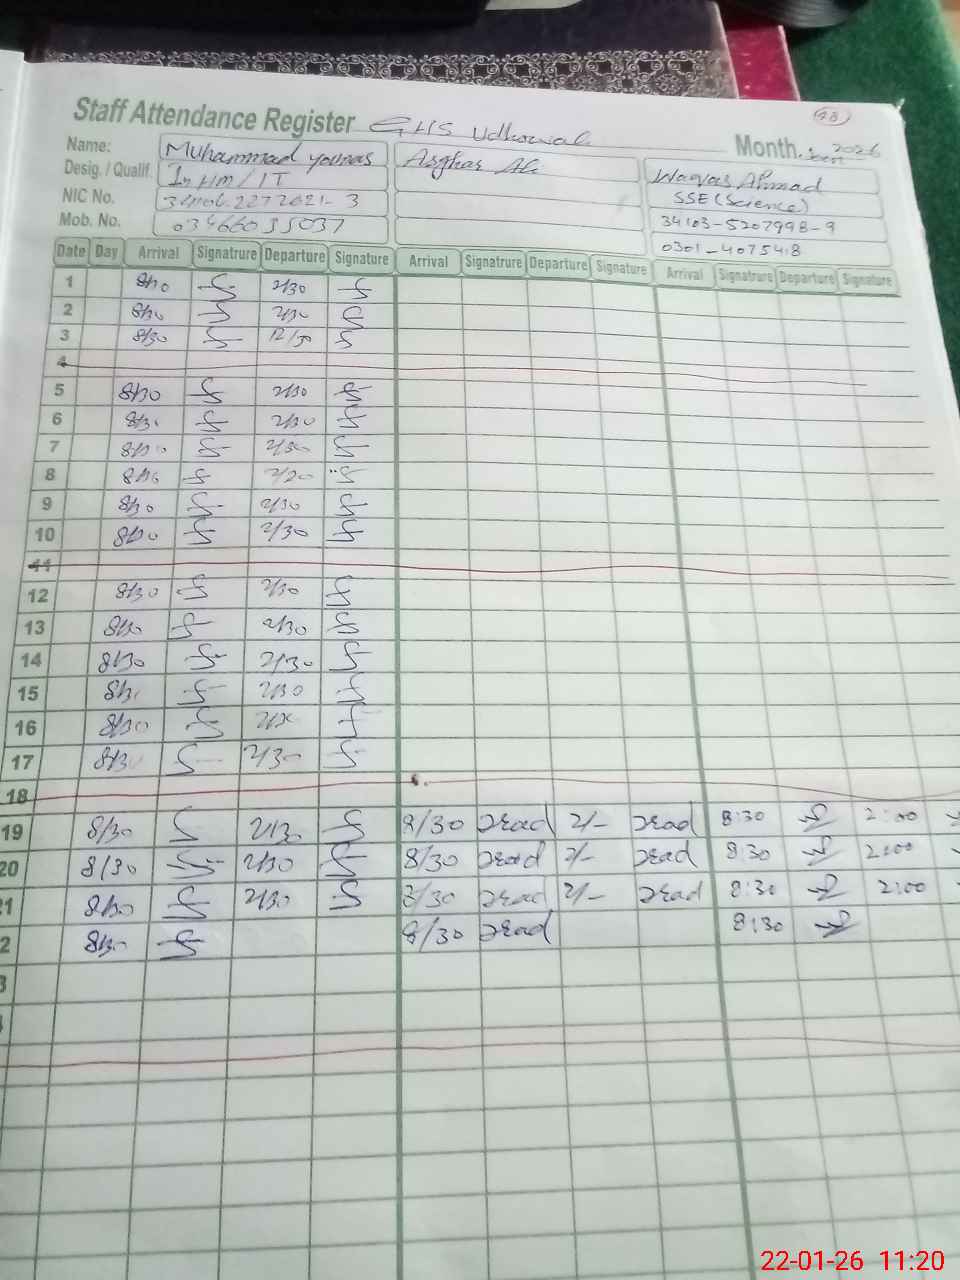 98
Staff Attendance Register GHS Udhowali Month. Jan 2026
Name: Muhammad younas Asghar Ali Waqas Ahmad
Desig. / Qualif. In HM / IT SSE (Science)
NIC No. 34103-5207998-9
Mob. No. 03466035037 0301-4075418
Date Day Arrival Signatrure Departure Signature Arrival Signatrure Departure Signature Arrival Signatrure Departure Signature
1 8/30 2/30
2 8/30 2/30
3 8/30 12/30
4
5 8/30 2/30
6 8/30 2/30
7 8/30 2/30
8 8/30 2/30
9 8/30 2/30
10 8/30 2/30
11
12 8/30 2/30
13 8/30 2/30
14 8/30 2/30
15 8/30 2/30
16 8/30
17 8/30 2/30
18
19 8/30 2/30 8/30 2/- 8:30 2:00
20 8/30 2/30 8/30 2/- 8:30 2:00
21 8/30 2/30 8/30 2/- 8:30 2:00
2 8/30 8/30 8:30
3
22-01-26 11:20